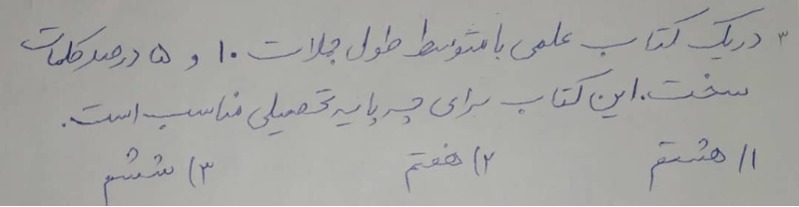 ۳ در یک کتاب علمی با متوسط طول جملات ۱۰ و ۵ درصد کلمات
سخت. این کتاب برای چه پایه تحصیلی مناسب است.
۱) هشتم ۲) هفتم ۳) ششم